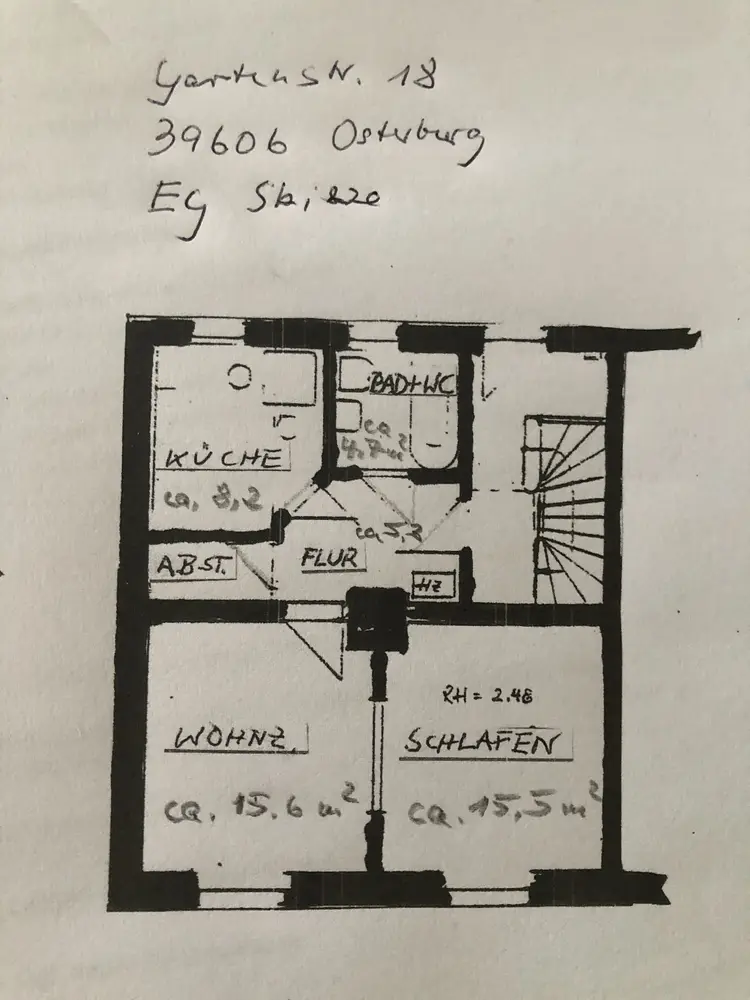 Gartenstr. 18
39606 Osterburg
EG Skizze
BAD+WC
ca
4,7m²
KÜCHE
ca. 8,2
ca 5,2
ABST.
FLUR
HZ
RH = 2.48
WOHNZ.
SCHLAFEN
ca. 15,6 m²
ca. 15,5 m²